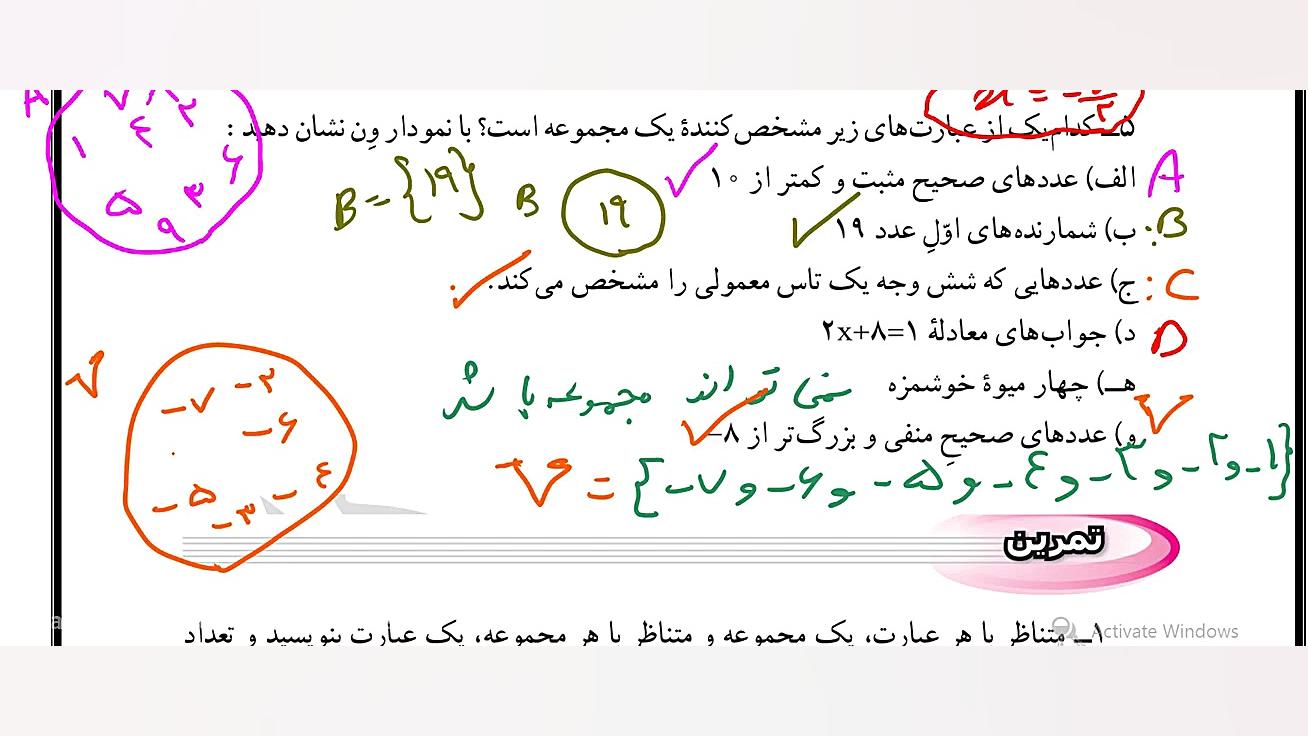 ۵ــ کدام‌یک از عبارت‌های زیر مشخص‌کنندهٔ یک مجموعه است؟ با نمودار وِن نشان دهید :
A الف) عددهای صحیح مثبت و کمتر از ۱۰
B: ب) شمارنده‌های اوّلِ عدد ۱۹
B={۱۹} B ۱۹
C: ج) عددهایی که شش وجه یک تاس معمولی را مشخص می‌کند.
D د) جواب‌های معادلهٔ ۲x+۸=۱
هـ) چهار میوهٔ خوشمزه نمی تواند مجموعه باشد
و) عددهای صحیحِ منفی و بزرگ‌تر از ۸−
V = {-۷ و -۶ و -۵ و -۴ و -۳ و -۲ و -۱}
A
۷ ۲
۱ ۴ ۶
۵ ۳
۹
V
-۷ -۲
-۶
-۵ -۳ -۴
تمرین
۱ــ متناظر با هر عبارت، یک مجموعه و متناظر با هر مجموعه، یک عبارت بنویسید و تعداد
Activate Windows